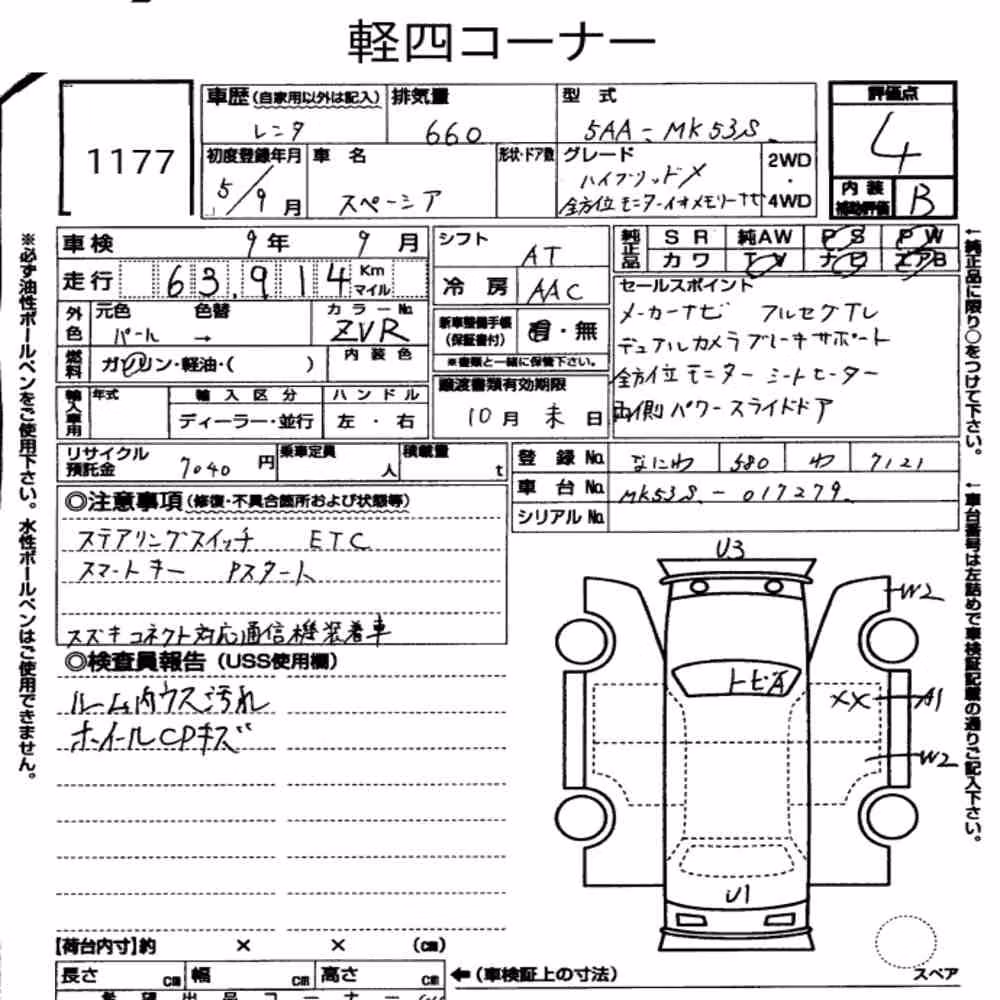 軽四コーナー
1177
車歴(自家用以外は記入)
レンタ
排気量
660
型式
5AA-MK53S
評価点
4
内装
補助評価
B
初度登録年月
5/9月
車名
スペーシア
形状・ドア数
グレード
ハイブリッドX
全方位モニターイオメモリーナビ
2WD
・
4WD
車検 9年 9月
シフト
AT
純正品
SR 純AW PS PW
カワ TV ナビ エアB
走行 63,914 Km
マイル
冷房 AAC
セールスポイント
メーカーナビ フルセグTV
デュアルカメラブレーキサポート
全方位モニター シートヒーター
両側パワースライドドア
外色
元色 色替
パール →
カラーNo.
ZVR
内装色
新車整備手帳
(保証書付)
有・無
※書類と一緒に保管下さい。
燃料
ガソリン・軽油・( )
譲渡書類有効期限
10月末日
輸入車用
年式
輸入区分
ディーラー・並行
ハンドル
左・右
リサイクル
預託金
7040円
乗車定員
人
積載量
t
登録No. なにわ 580 わ 7121
車台No. MK53S-017279
シリアルNo.
◎注意事項(修復・不具合箇所および状態等)
ステアリングスイッチ ETC
スマートキー Pスタート
スズキコネクト対応通信機装着車
◎検査員報告(USS使用欄)
ルーム内ウス汚れ
ホイールCPキズ
U3
W2
トビA
XX
A1
W2
U1
スペア
【荷台内寸】約 × × (cm)
長さ cm 幅 cm 高さ cm
←(車検証上の寸法)
希望出品コーナー
※必ず油性ボールペンをご使用下さい。水性ボールペンはご使用できません。
←純正品に限り○をつけて下さい。
←車台番号は左詰めで車検証記載の通りご記入下さい。